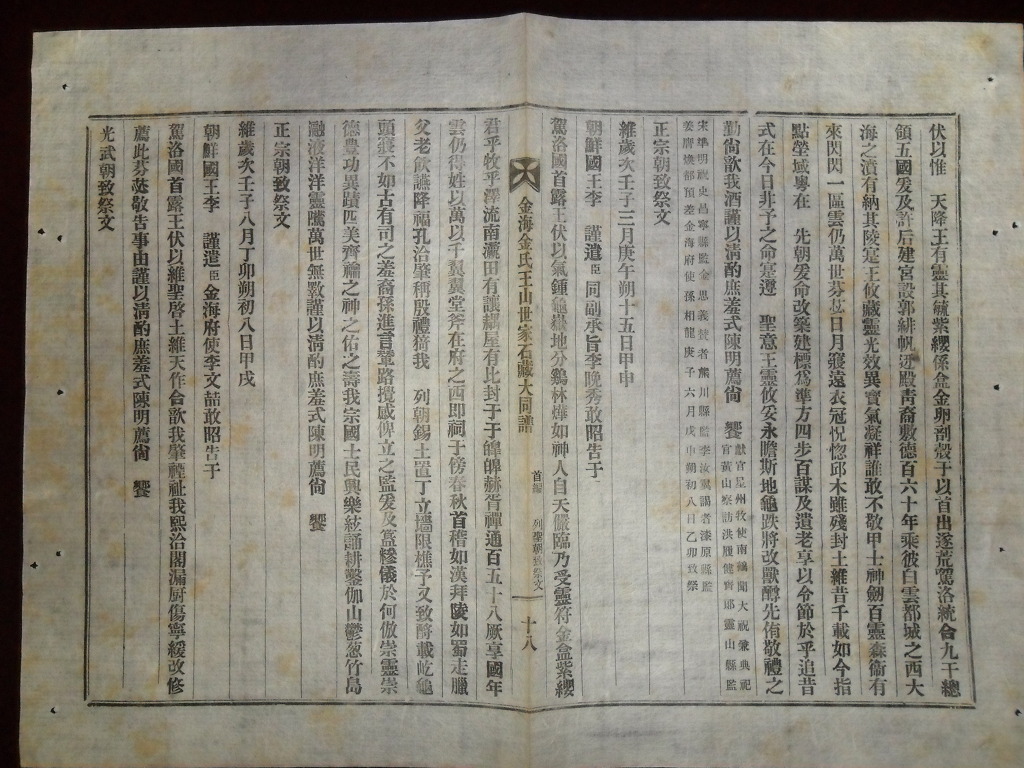 伏以惟 天降王有靈其毓紫纓係盒金卵剖殼于以首出遂荒駕洛統合九干總
領五國爰及許后建宮設郭緋帆迓殿靑裔敷德百六十年乘彼白雲都城之西大
海之濆有納其陵寔王攸藏靈光效異寶氣凝祥誰敢不敬甲士神劒百靈森衞有
來閃閃一區雲仍萬世芬苾日月寢遠衣冠怳惚邱木雖殘封土維昔千載如今指
點塋域粤在 先朝爰命改築建標爲準方四步百謀及遺老享以令節於乎追昔
式在今日非予之命寔遵 聖意王靈攸妥永瞻斯地龜趺將改獸酹先侑敬禮之
勤尙歆我酒謹以淸酌庶羞式陳明薦尙 饗 獻官星州牧使南鶴聞大祝兼典祀官黃山察訪洪履健齊郞靈山縣監
宋準明祝史昌寧縣監金思羲贊者熊川縣監李汝翼謁者漆原縣監
姜膺煥都預差金海府使孫相龍庚子六月戊申朔初八日乙卯致祭
正宗朝致祭文
維歲次壬子三月庚午朔十五日甲申
朝鮮國王李 謹遣臣同副承旨李晚秀敢昭告于
駕洛國首露王伏以氣鍾龜嶽地分鷄林燁如神人自天儼臨乃受靈符金盒紫纓
金海金氏王山世家石藏大同譜 首編 列聖朝致祭文 十八
君乎牧乎澤流南瀛田有讓耦屋有比封于于皥皥赫胥禪通百五十八厥享國年
雲仍得姓以萬以千翼翼堂斧在府之西卽祠于傍春秋首稽如漢拜陵如蜀走臘
父老飮讌降福孔洽肇稱殷禮猗我 列朝錫土置丁立墻限樵予又致酹載屹龜
頭袞不如古有司之羞裔孫進言輦路攪感俾立之監爰及簋篸儀於何倣崇靈崇
德豊功異蹟匹美齊禴之神之佑之壽我宗國士民興樂絃誦耕鑿伽山鬱葱竹島
瀜液洋洋靈隲萬世無斁謹以淸酌庶羞式陳明薦尙 饗
正宗朝致祭文
維歲次壬子八月丁卯朔初八日甲戌
朝鮮國王李 謹遣臣金海府使李文喆敢昭告于
駕洛國首露王伏以維聖啓土維天作合歆我肇禋祉我熙洽閣漏厨傷寧緩改修
薦此芬苾敬告事由謹以淸酌庶羞式陳明薦尙 饗
光武朝致祭文